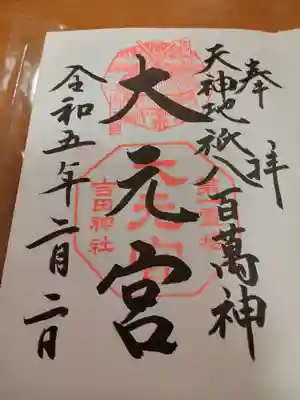 奉拝
天神地祇八百萬神
大元宮
吉田神社
令和五年二月二日